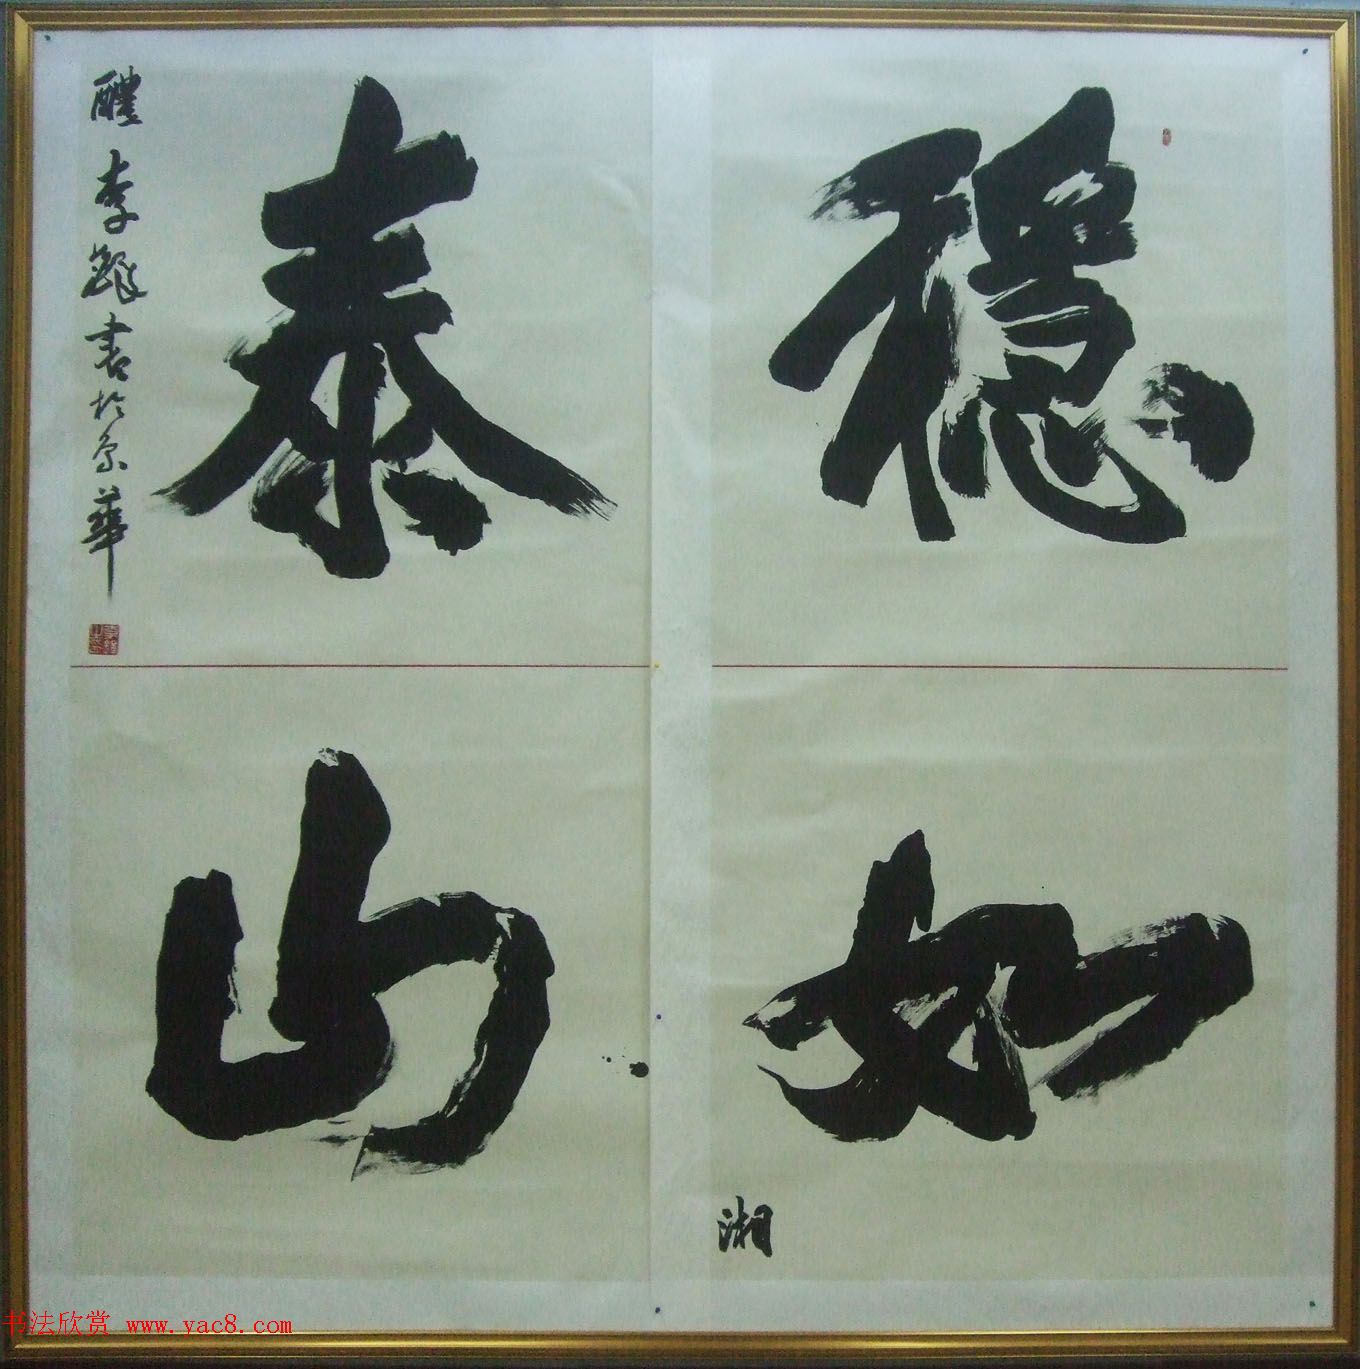 穩如
泰山
湘
醴李
書於京華
书法欣赏 www.yac8.com